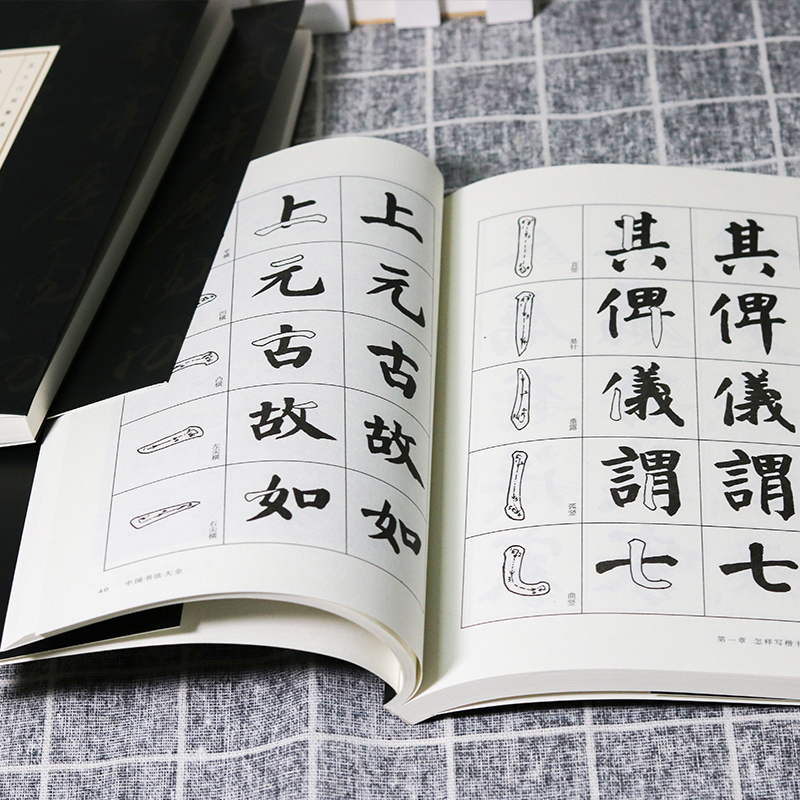 上 上
凹横 元 元
古 古
左尖横 故 故
右尖横 如 如
40 中国书法大全
直竖 其 其
悬针 俾 俾
垂露 儀 儀
弧竖 謂 謂
曲竖 七 七
第一章 怎样写楷书